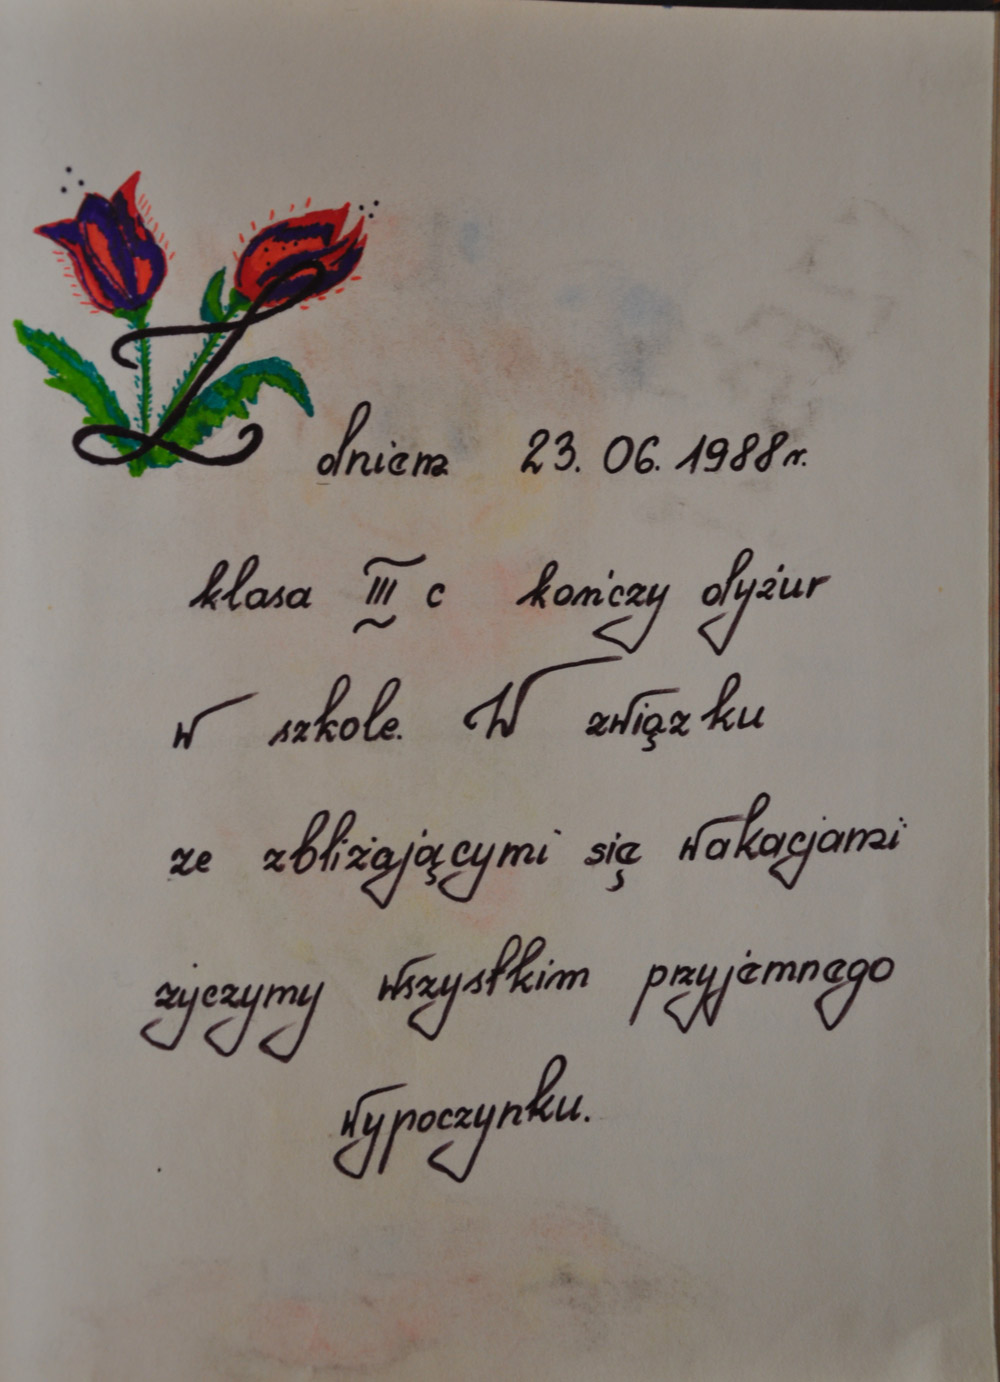 Z dniem 23. 06. 1988r.
klasa III c kończy dyżur
w szkole. W związku
ze zbliżającymi się wakacjami
życzymy wszystkim przyjemnego
wypoczynku.